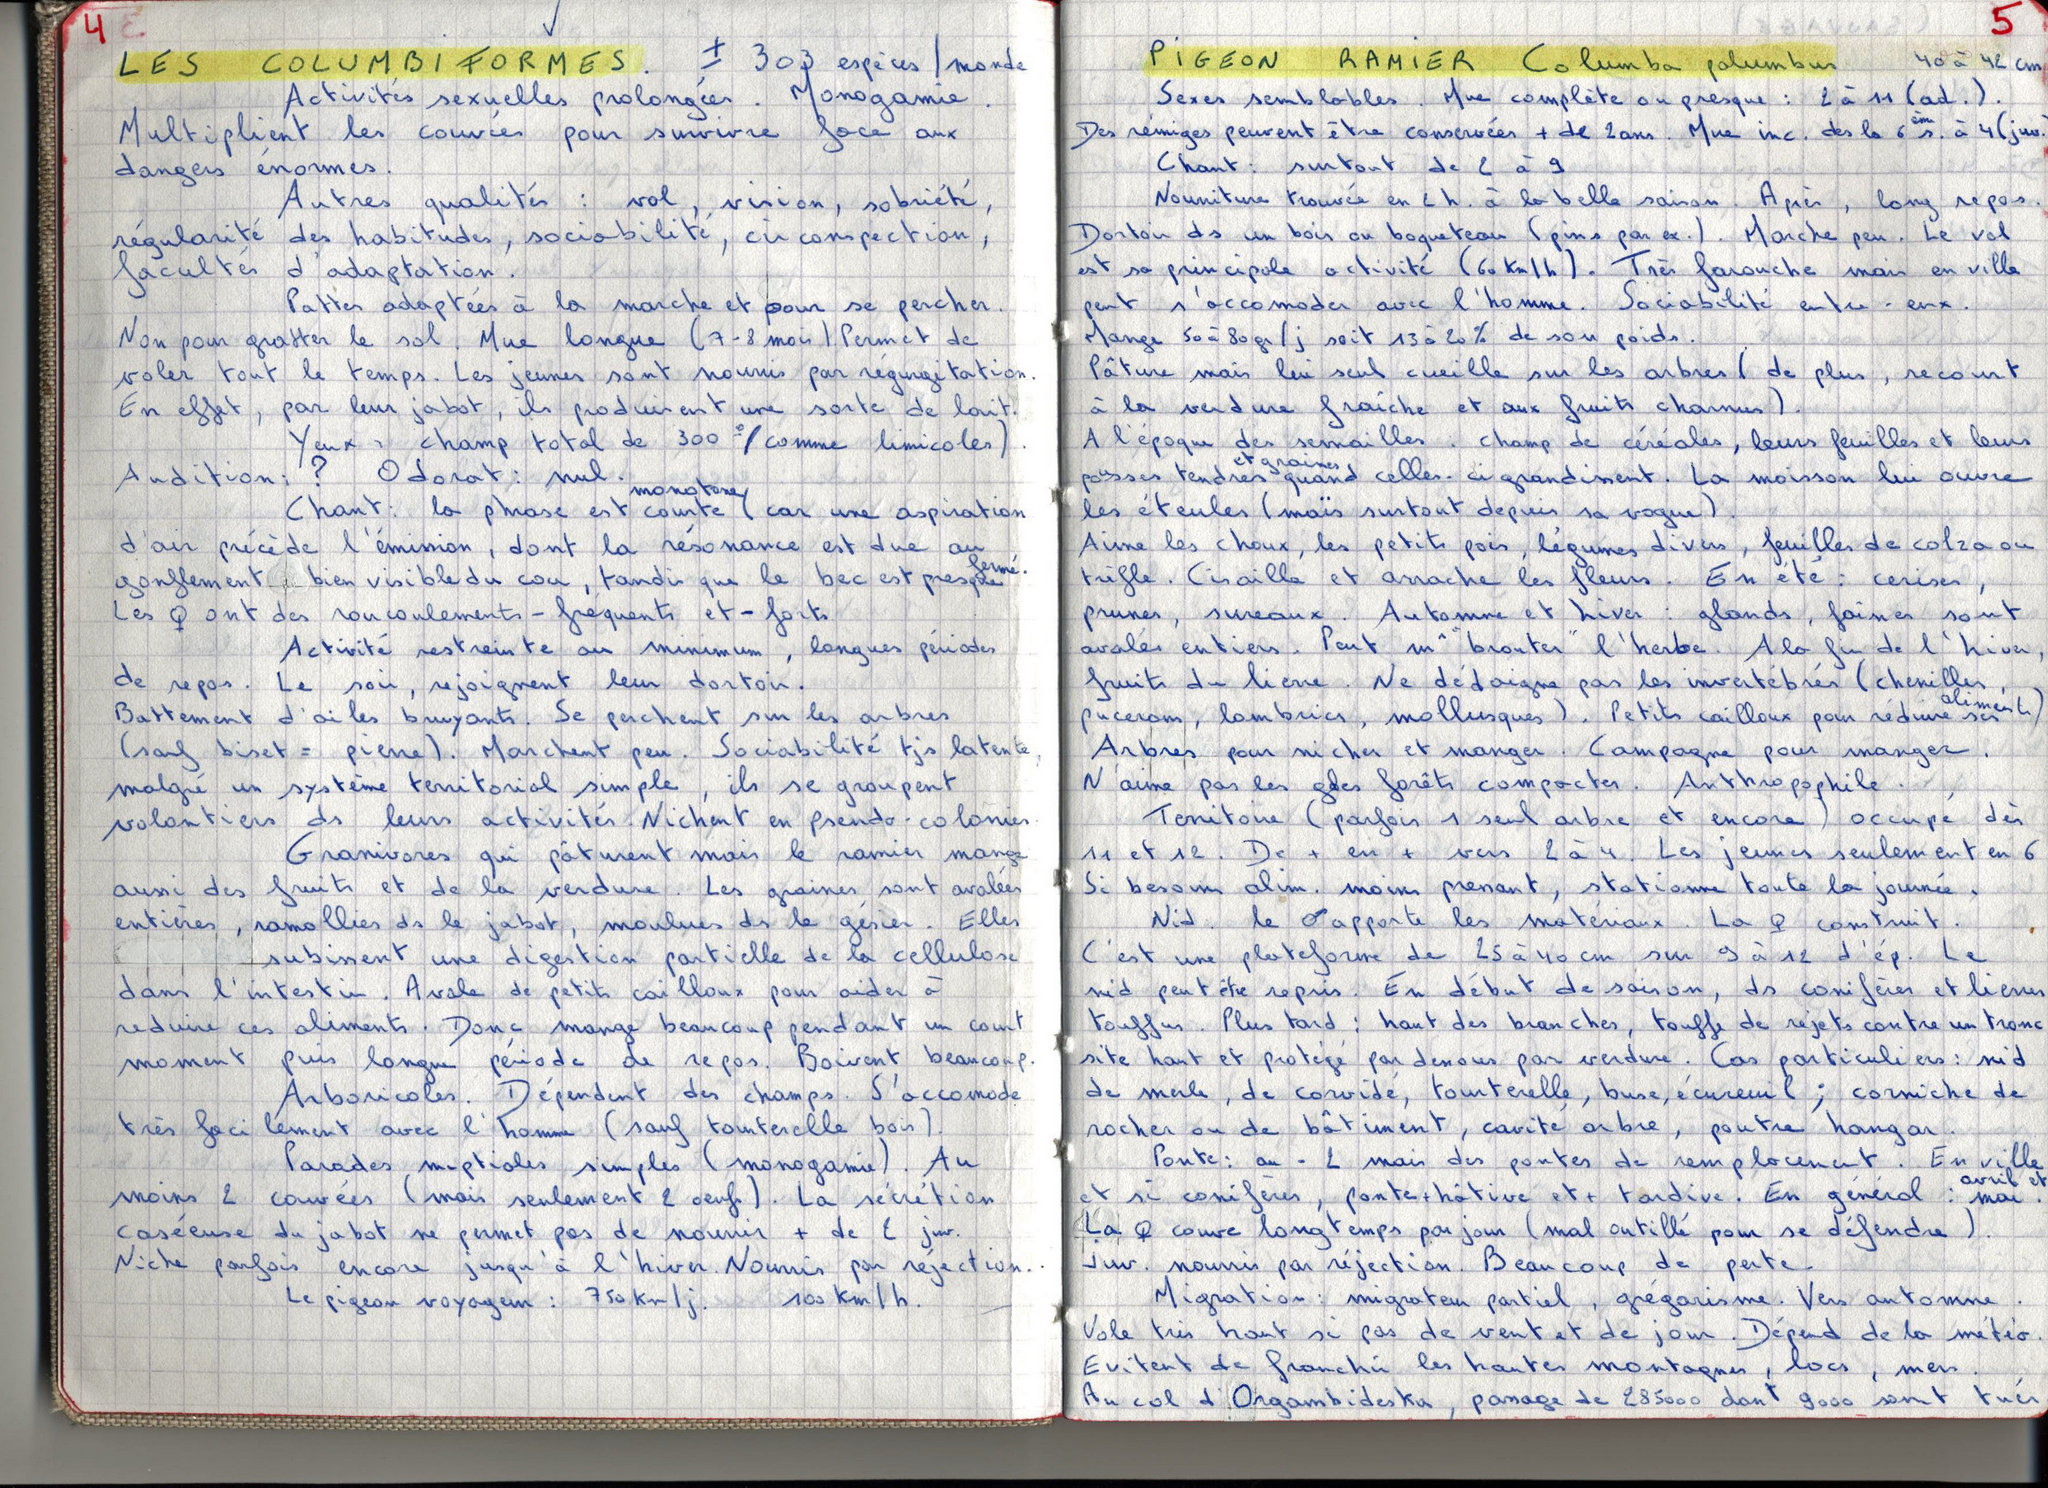 4
LES COLUMBIFORMES. ± 303 espèces / monde
Activités sexuelles prolongées. Monogamie.
Multiplient les couvées pour survivre face aux
dangers énormes.
Autres qualités : vol, vision, sobriété,
régularité des habitudes, sociabilité, circonspection,
facultés d'adaptation.
Pattes adaptées à la marche et pour se percher.
Non pour gratter le sol. Mue longue (7-8 mois) Permet de
voler tout le temps. Les jeunes sont nourris par régurgitation.
En effet, par leur jabot, ils produisent une sorte de lait.
Yeux : champ total de 300° (comme limicoles).
Audition : ? Odorat : nul.
Chant : la phrase est courte monotone (car une aspiration
d'air précède l'émission, dont la résonance est due au
gonflement bien visible du cou, tandis que le bec est presque fermé.
Les ♀ ont des roucoulements - fréquents et - forts
Activité restreinte au minimum, longues périodes
de repos. Le soir, rejoignent leur dortoir.
Battement d'ailes bruyants. Se perchent sur les arbres
(sauf biset = pierre). Marchent peu. Sociabilité tjs latente,
malgré un système territorial simple, ils se groupent
volontiers ds leurs activités. Nichent en pseudo-colonies.
Granivores qui pâturent mais le ramier mange
aussi des fruits et de la verdure. Les graines sont avalées
entières, ramollies ds le jabot, moulues ds le gésier. Elles
subissent une digestion partielle de la cellulose
dans l'intestin. Avale de petits cailloux pour aider à
reduire ces aliments. Donc mange beaucoup pendant un court
moment puis longue période de repos. Boivent beaucoup.
Arboricoles. Dépendent des champs. S'accomode
très facilement avec l'homme (sauf tourterelle bois).
Parades nuptiales simples (monogamie). Au
moins 2 couvées (mais seulement 2 oeufs). La sécrétion
caséeuse du jabot ne permet pas de nourrir + de 2 juv.
Niche parfois encore jusqu'à l'hiver. Nourris par réjection.
Le pigeon voyageur : 750 km/j. 100 km/h.
5
PIGEON RAMIER Columba palumbus 40 à 42 cm
Sexes semblables. Mue complète ou presque : 2 à 11 (ad.).
Des rémiges peuvent être conservées + de 2 ans. Mue inc. des la 6ème s. à 4 (juv.
Chant : surtout de 2 à 9
Nourriture trouvée en 2 h. à la belle saison. Après, long repos.
Dortoir ds un bois ou boqueteau (pins par ex.). Marche peu. Le vol
est sa principale activité (60 km/h). Très farouche mais en ville
peut s'accomoder avec l'homme. Sociabilité entre-eux.
Mange 50 à 80 gr/j soit 13 à 20% de son poids.
Pâture mais lui seul cueille sur les arbres (de plus, recourt
à la verdure fraîche et aux fruits charnus).
A l'époque des semailles. champ de céréales, leurs feuilles et leurs
pousses tendres et graines quand celles-ci grandissent. La moisson lui ouvre
les éteules (maïs surtout depuis sa vogue).
Aime les choux, les petits pois, légumes divers, feuilles de colza ou
trèfle. Cisaille et arrache les fleurs. En été : cerises,
prunes, sureaux. Automne et hiver : glands, faînes sont
avalés entiers. Peut m̂ "brouter" l'herbe. A la fin de l'hiver,
fruits du lierre. Ne dédaigne pas les invertébrés (chenilles,
pucerons, lombrics, mollusques). Petits cailloux pour réduire ses aliments)
Arbres pour nicher et manger. Campagne pour manger.
N'aime pas les gdes forêts compactes. Anthropophile.
Territoire (parfois 1 seul arbre et encore) occupé dès
11 et 12. De + en + vers 2 à 4. Les jeunes seulement en 6
Si besoins alim. moins prenant, stationne toute la journée.
Nid. le ♂ apporte les matériaux. La ♀ construit.
C'est une plateforme de 25 à 40 cm sur 9 à 12 d'ép. Le
nid peut être repris. En début de saison, ds conifères et lierres
touffus. Plus tard : haut des branches, touffe de rejets contre un tronc
site haut et protégé par dessous par verdure. Cas particuliers : nid
de merle, de corvidé, tourterelle, buse, écureuil ; corniche de
rocher ou de bâtiment, cavité arbre, poutre hangar.
Ponte : au - 2 mais des pontes de remplacement. En ville
et si conifères, ponte + hâtive et + tardive. En général : avril et mai.
La ♀ couve longtemps par jour (mal outillé pour se défendre).
Juv. nourris par réjection. Beaucoup de perte.
Migration : migrateur partiel, grégarisme. Vers automne.
Vole très haut si pas de vent et de jour. Dépend de la météo.
Evitent de franchir les hautes montagnes, lacs, mers.
Au col d'Orgambideska, passage de 285000 dont 9000 sont tués